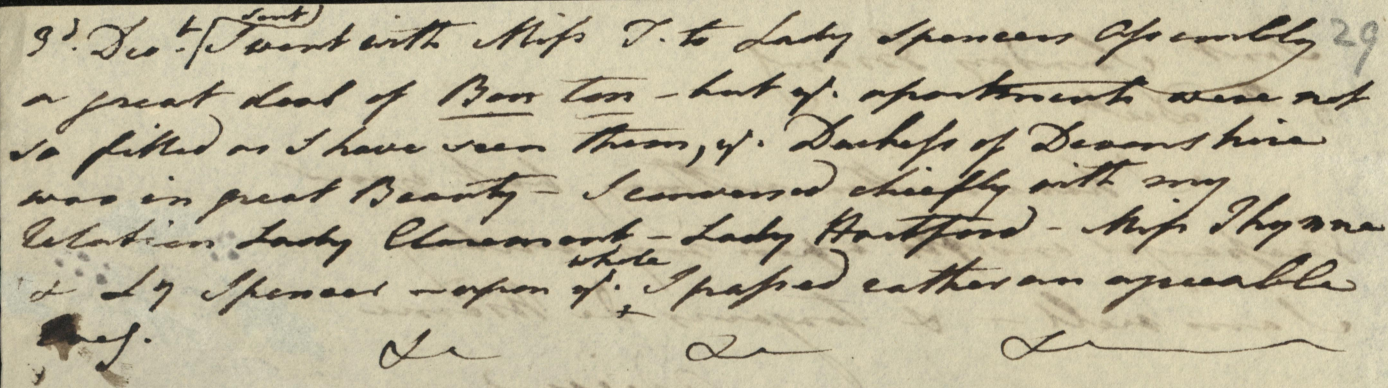 3d. Decr. (sent) I went with Miss T. to Lady Spencers Assembly 29
a great deal of Bon Ton - but ye. apartments were not
so filled as I have seen them, ye. Duchess of Devonshire
was in great Beauty - I conversed chiefly with my
Relation Lady Claremont - Lady Hartford - Miss Thynne
& Ly Spencer - upon ye. whole I passed rather an agreeable
&c &c &c